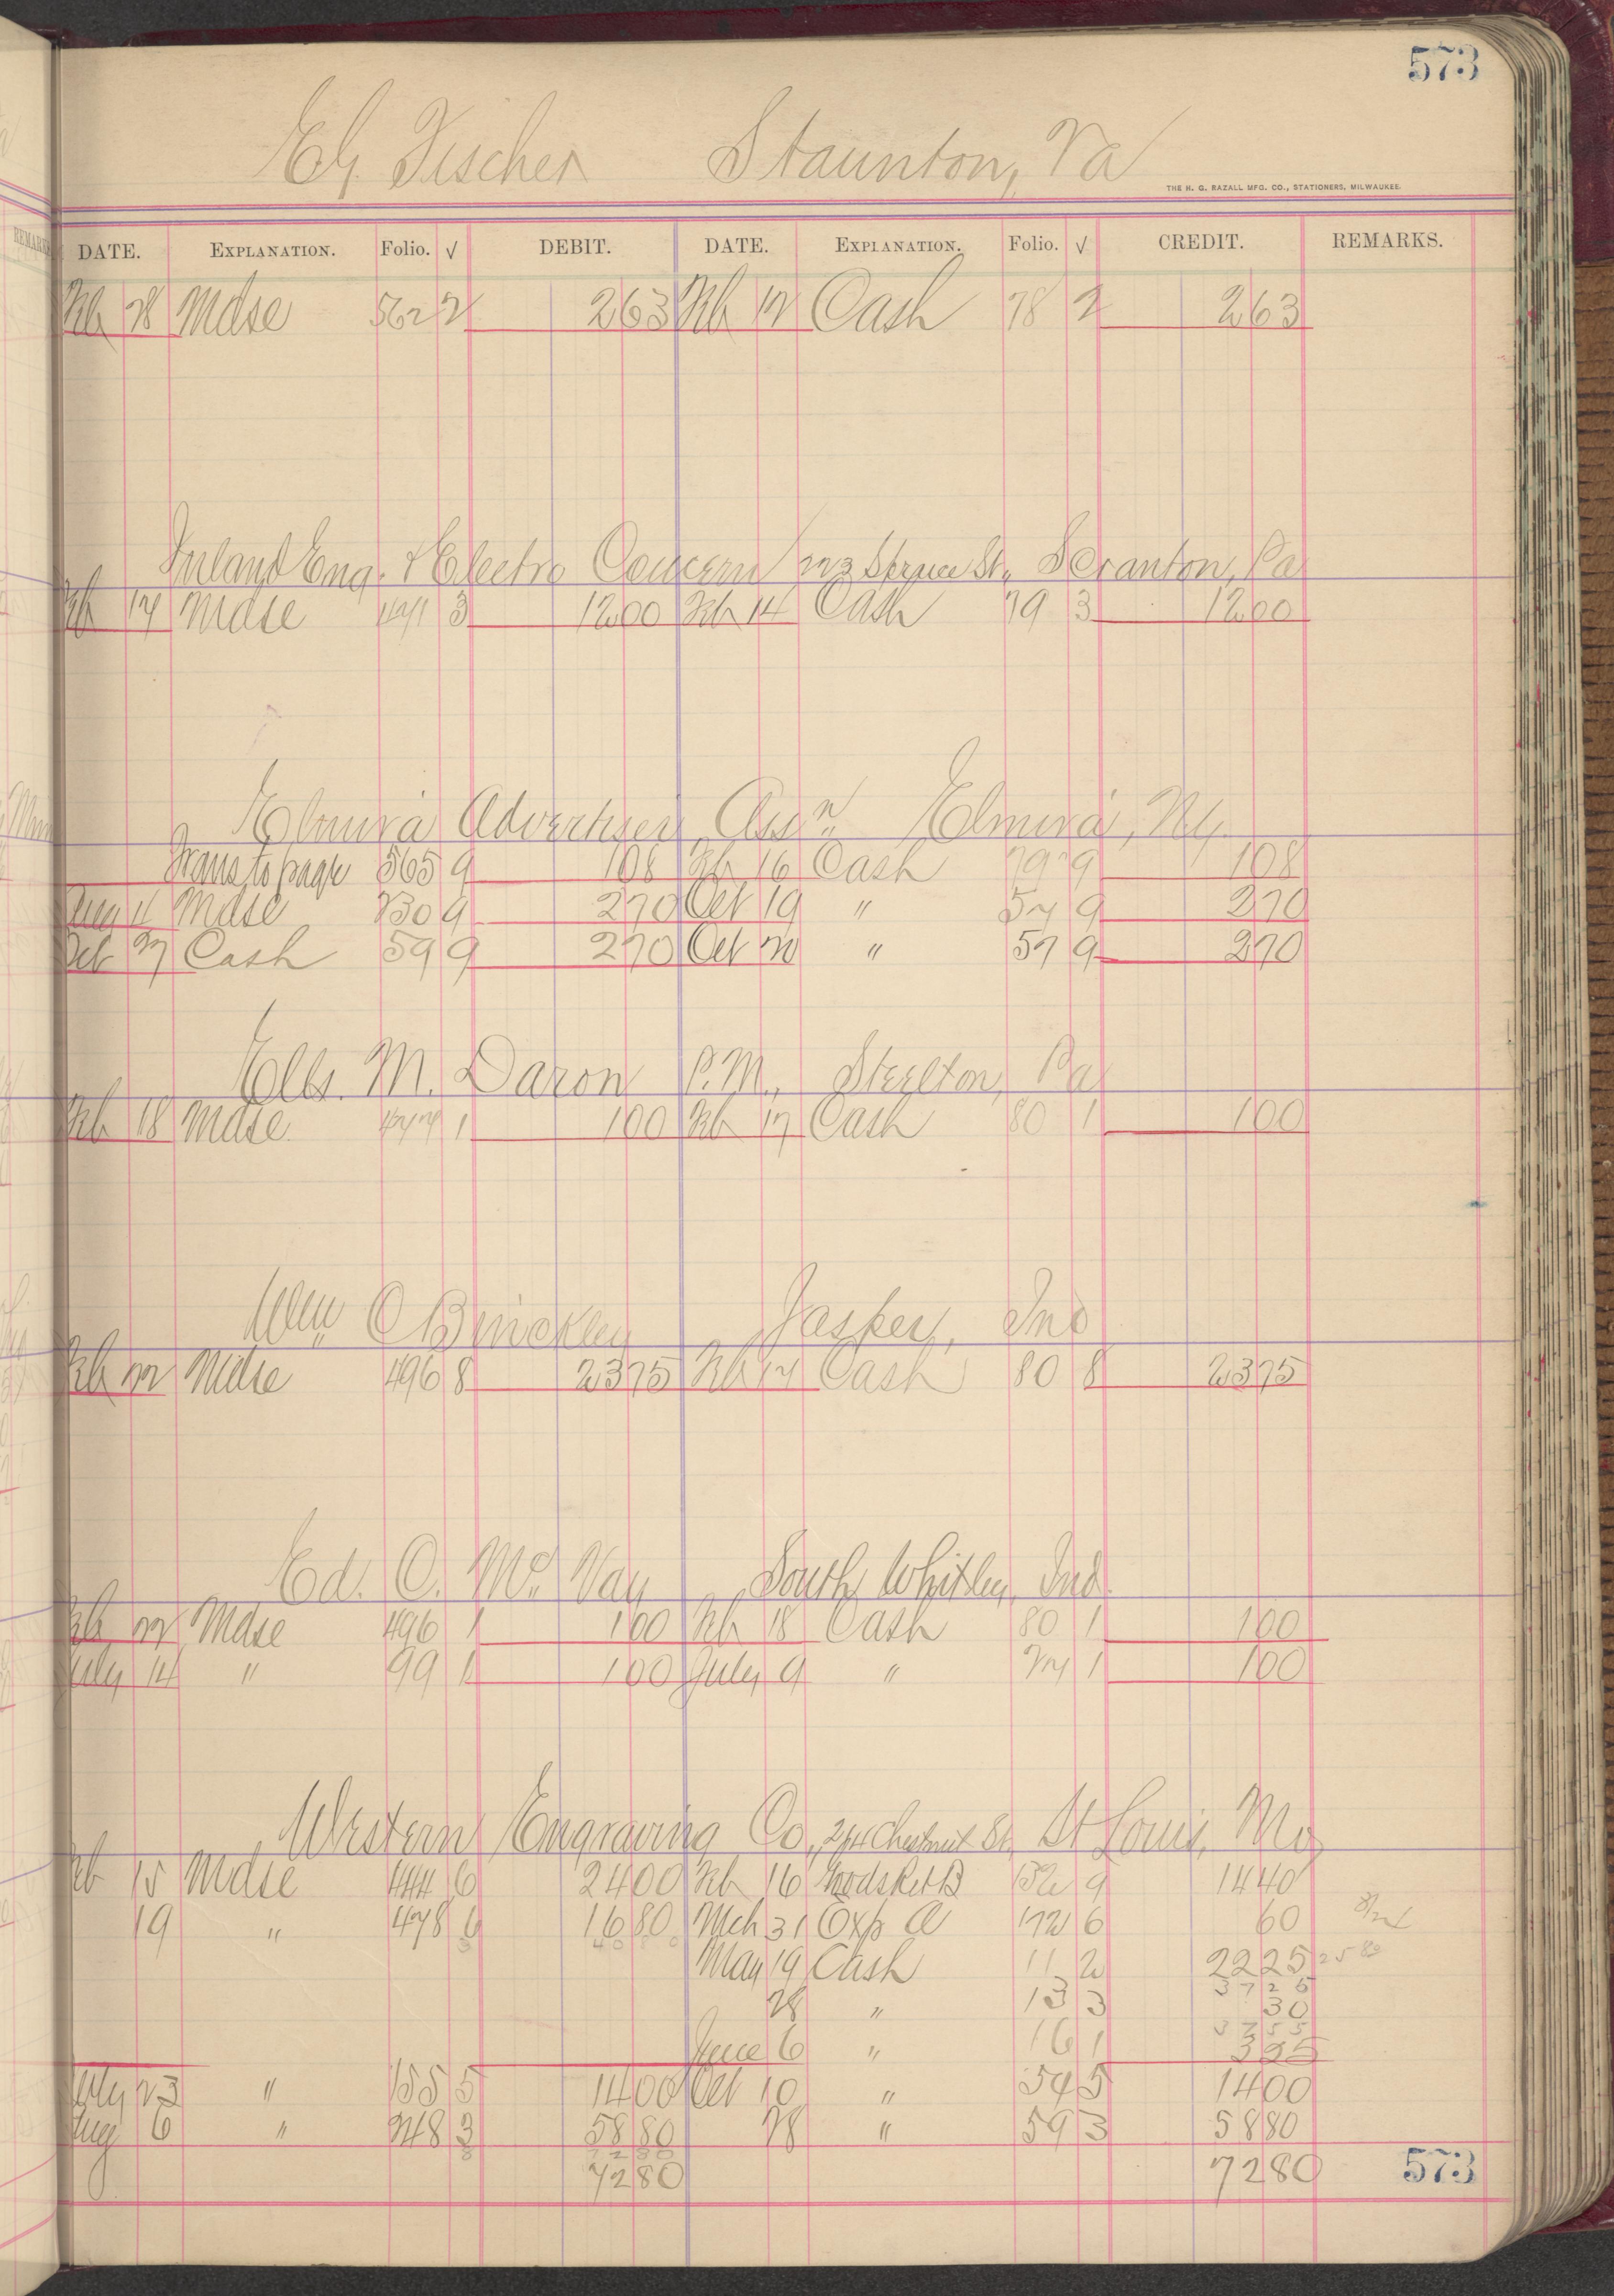 573
E.G. Fischer Staunton, Va
THE H. G. RAZALL MFG. CO., STATIONERS, MILWAUKEE.
DATE. EXPLANATION. Folio. √ DEBIT. DATE. EXPLANATION. Folio. √ CREDIT. REMARKS.
Feb 28 Mdse 562 2 2 63 Feb 12 Cash 78 2 2 63
Inland Eng. & Electro Concern Spruce St., Scranton, Pa
Feb 17 Mdse 471 3 12 00 Feb 14 Cash 79 3 12 00
Elmira Advertiser Ass'n Elmira, N.Y.
Trans to page 565 9 1 08 Feb 16 Cash 79 9 1 08
Aug 11 Mdse 230 9 2 70 Oct 19 " 57 9 2 70
Oct 27 Cash 59 9 2 70 Oct 20 " 57 9 2 70
Ells. M. Daron P.M., Steelton, Pa
Feb 18 Mdse 1 1 00 Feb 17 Cash 80 1 1 00
Wm C Brinckley Jasper, Ind
Feb 22 Mdse 496 8 23 75 Feb 17 Cash 80 8 23 75
Ed. C. Mc Vay South Whitley, Ind.
Feb 22 Mdse 496 1 1 00 Feb 18 Cash 80 1 1 00
July 14 " 99 1 1 00 July 9 " 27 1 1 00
Western Engraving Co., 214 Chestnut St, St Louis, Mo
Feb 15 Mdse 444 6 24 00 Feb 16 9 14 40
19 " 478 6 16 80 Mch 31 Exp a 172 6 60
May 19 Cash 11 2 22 25 25 80
37 25
28 " 13 3 30
37 55
June 6 " 16 1 3 25
July 23 " 155 5 14 00 Oct 10 " 54 5 14 00
Aug 6 " 248 3 58 80 28 " 59 3 58 80
72 80
72 80 72 80
573